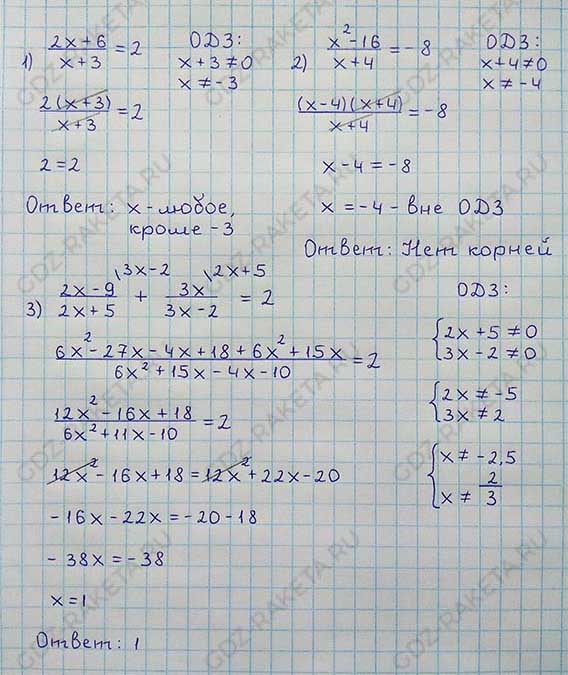 1) (2x+6)/(x+3) = 2
ОДЗ:
x+3 ≠ 0
x ≠ -3
2(x+3)/(x+3) = 2
2 = 2
Ответ: x - любое,
кроме -3
2) (x²-16)/(x+4) = -8
ОДЗ:
x+4 ≠ 0
x ≠ -4
(x-4)(x+4)/(x+4) = -8
x-4 = -8
x = -4 - вне ОДЗ
Ответ: Нет корней
3) (2x-9)/(2x+5) \3x-2 + 3x/(3x-2) \2x+5 = 2
(6x²-27x-4x+18+6x²+15x)/(6x²+15x-4x-10) = 2
(12x²-16x+18)/(6x²+11x-10) = 2
12x²-16x+18 = 12x²+22x-20
-16x-22x = -20-18
-38x = -38
x = 1
Ответ: 1
ОДЗ:
{2x+5 ≠ 0
3x-2 ≠ 0
{2x ≠ -5
3x ≠ 2
{x ≠ -2,5
x ≠ 2/3
GDZ-RAKETA.RU